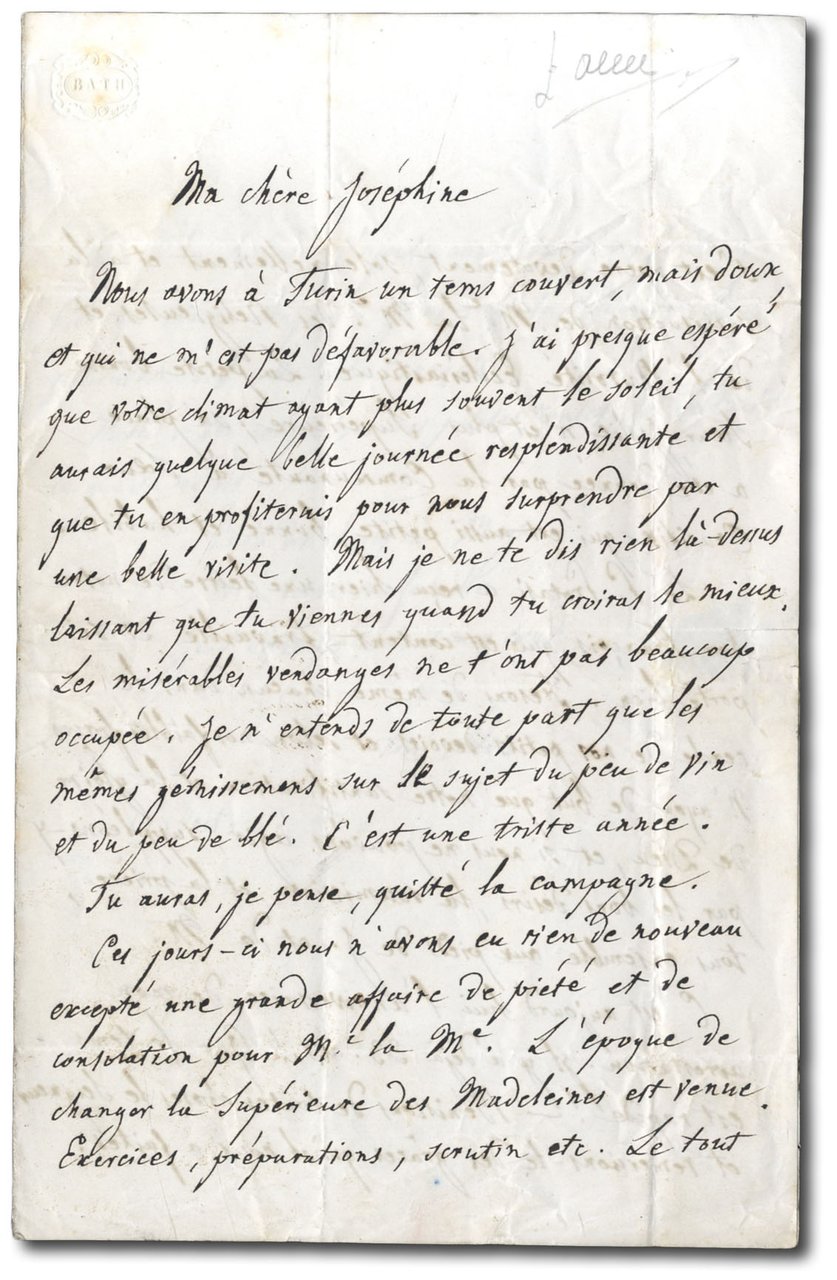 BATH
Ma chère Joséphine
Nous avons à Turin un tems couvert, mais doux,
et qui ne m'est pas défavorable. J'ai presque espéré
que votre climat ayant plus souvent le soleil, tu
aurais quelque belle journée resplendissante et
que tu en profiterais pour nous surprendre par
une belle visite. Mais je ne te dis rien là-dessus
laissant que tu viennes quand tu croiras le mieux.
Les misérables vendanges ne t'ont pas beaucoup
occupée. Je n'entends de toute part que les
mêmes gémissemens sur le sujet du peu de vin
et du peu de blé. C'est une triste année.
Tu auras, je pense, quitté la campagne.
Ces jours-ci nous n'avons eu rien de nouveau
excepté une grande affaire de piété et de
consolation pour M.e la M.e. L'époque de
changer la Supérieure des Madeleines est venue.
Exercices, préparations, scrutin etc. Le tout